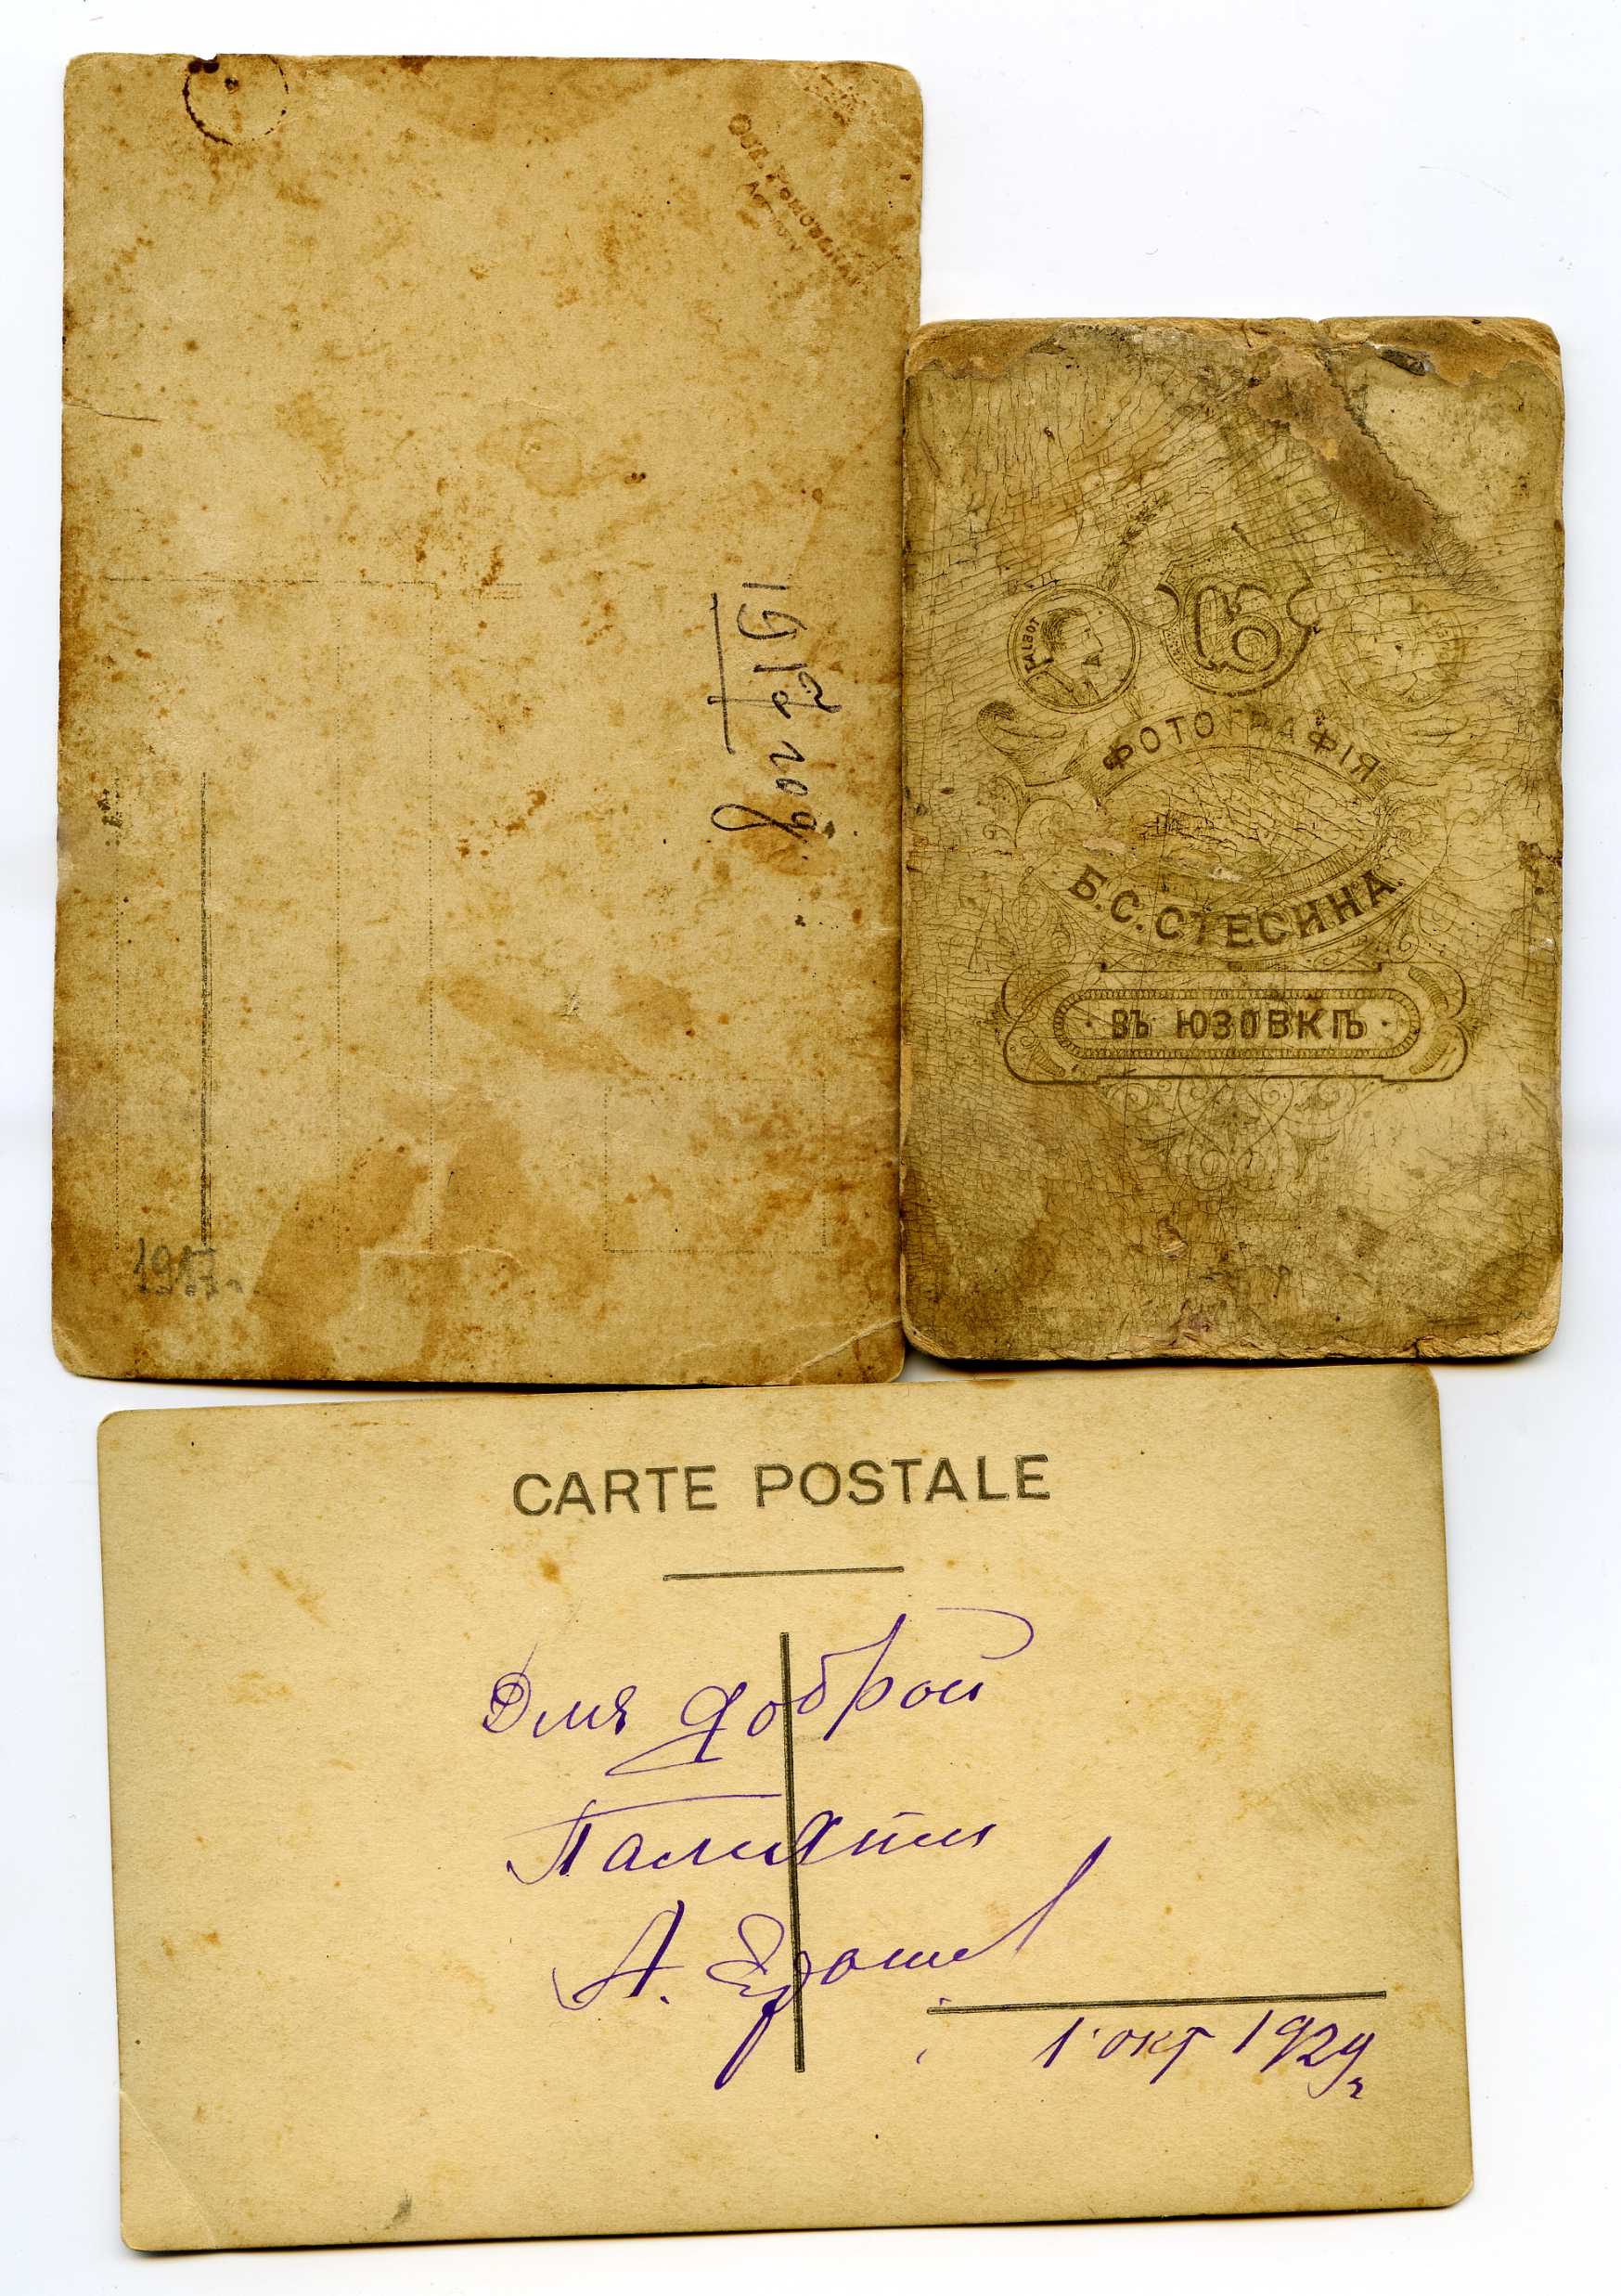 1917 год
TALBOT
ФОТОГРАФІЯ
Б.С.СТЕСИНА
ВЪ ЮЗОВКѢ
CARTE POSTALE
Для доброй
Памяти
А.
1 окт 1929 г